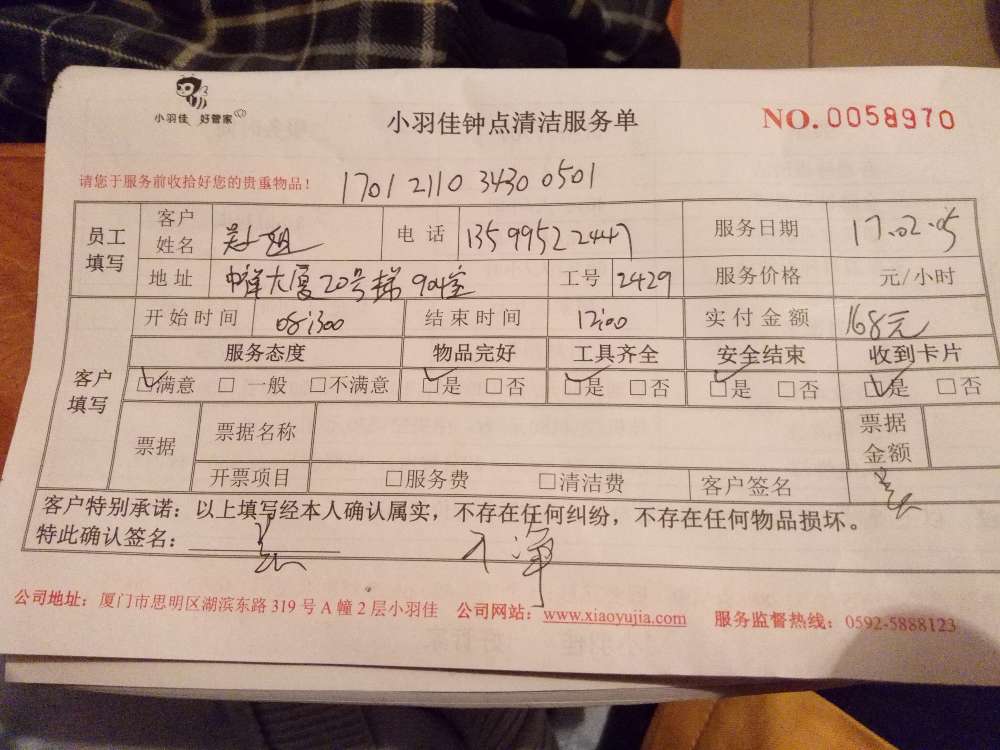 小羽佳 好管家
小羽佳钟点清洁服务单
NO.0058970
请您于服务前收拾好您的贵重物品！
1701 2110 3430 0501
员工填写 客户姓名 电话 13599522447 服务日期 17.02.05
地址 大厦20号梯904室 工号 2429 服务价格 元/小时
客户填写 开始时间 08:00 结束时间 12:00 实付金额 168元
服务态度 物品完好 工具齐全 安全结束 收到卡片
☑满意 □一般 □不满意 ☑是 □否 ☑是 □否 ☑是 □否 ☑是 □否
票据 票据名称 票据金额
开票项目 □服务费 □清洁费 客户签名
客户特别承诺：以上填写经本人确认属实，不存在任何纠纷，不存在任何物品损坏。
特此确认签名：
公司地址：厦门市思明区湖滨东路319号A幢2层小羽佳 公司网站：www.xiaoyujia.com 服务监督热线：0592-5888123